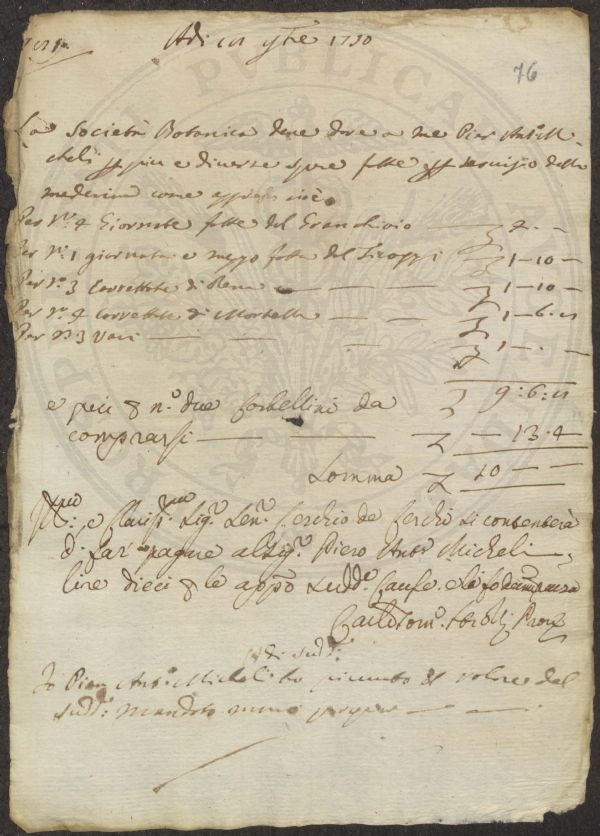 Adi 7bre 1730
76
La Società Botanica deve dare a me Pier Ant.o Mi-
cheli p più e diverse spese fatte p servizio della
medesima come appresso cioè
Per n.o 4 Giornate fatte del Granchiaio — 4 - -
Per n.o 1 giornata e mezzo fatta del — 1 - 10 -
Per n.o 3 Carrettate di Rena — — 1 - 10 -
Per n.o 4 Carrettate di Mortella — — 1 - 6 - 8
Per n.o 3 Vasi — — — 1 - -
9 : 6 : 8
e più n.o due Corbellini da
comprarsi — — — 13 : 4
Somma 10 — —
Ill.mo e Clariss.mo Sig.r Sen.r Cerchio de Cerchi si contenterà
di far pagare al Sig.r Piero Ant.o Micheli
lire dieci le app.o Sudd.e Cause e
di Sudd.o
Io Pier Ant.o Micheli ho ricevuto il valore del
Sudd.o Mandato mano propria — —